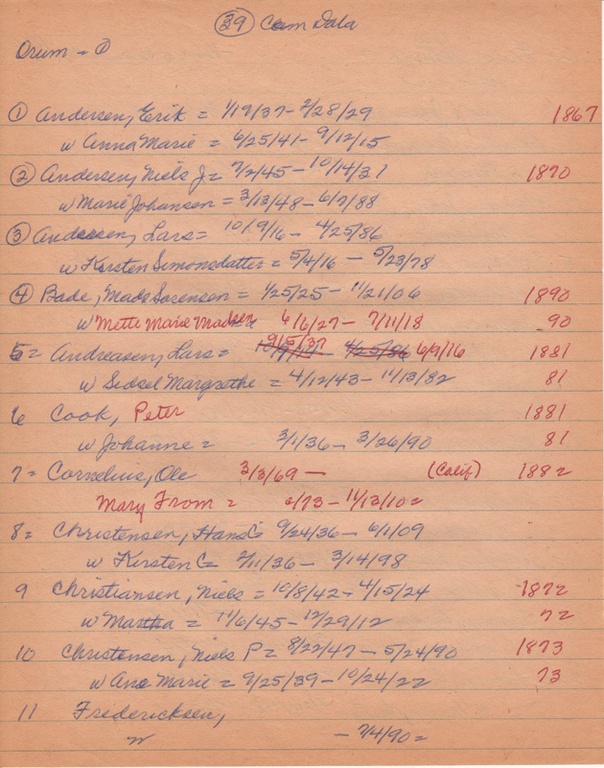 (39) Cem Data
Orum = ①
① Andersen, Erik = 1/19/37 - 2/28/29 1867
w Anna Marie = 6/25/41 - 9/12/15
② Andersen, Niels J = 7/2/45 - 10/14/31 1870
w Marie Johansen = 3/13/48 - 6/7/88
③ Andersen, Lars = 10/19/16 - 4/25/86
w Kirsten Simonsdatter = 5/4/16 - 5/23/78
④ Bade, Mads Sorensen = 1/25/25 - 11/21/06 1890
w Mette Marie Madsen 6/6/27 - 7/11/18 90
9/5/37
5 = Andreasen, Lars = 4/25/86 6/9/16 1881
w Sidsel Margrethe = 4/12/43 - 11/13/82 81
6 Cook, Peter 1881
w Johanne = 3/1/36 - 3/26/90 81
7 = Cornelius, Ole 3/3/69 - (Calif) 1882
Mary From = 6/73 - 11/13/10 =
8 = Christensen, Hans C = 9/24/36 - 6/1/09
w Kirsten C = 2/11/36 - 3/14/98
9 Christiansen, Niels = 10/8/42 - 4/15/24 1872
w Martha = 11/6/45 - 12/29/12 72
10 Christensen, Niels P = 8/22/47 - 5/24/90 1873
w Ane Marie = 9/25/39 - 10/24/22 73
11 Fredericksen,
w - 7/4/90 =